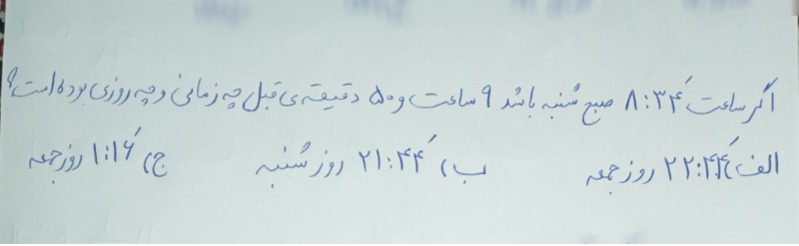 اگر ساعت ۸:۳۴ صبح شنبه باشد ۹ ساعت و ۵۰ دقیقه‌ی قبل چه زمانی و چه روزی بوده است؟
الف) ۲۲:۴۴ روز جمعه ب) ۲۱:۴۴ روز شنبه ج) ۱:۱۶ روز جمعه